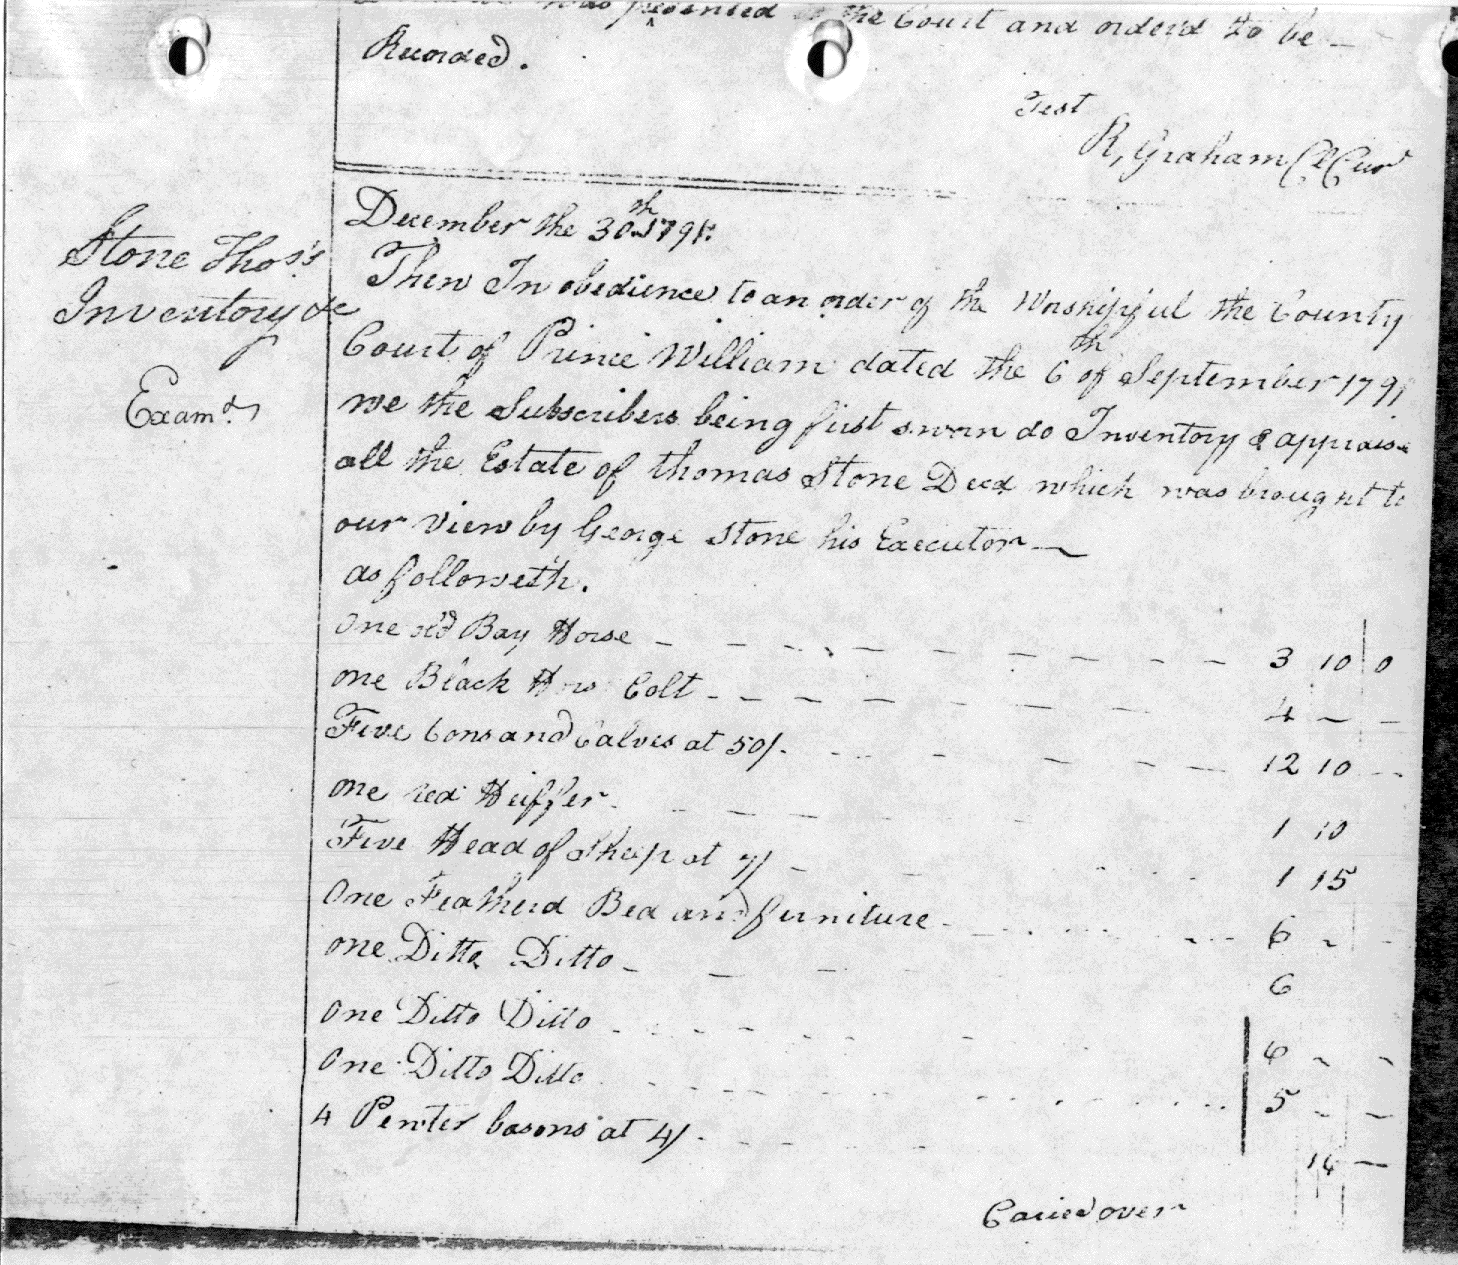 was presented to the Court and orderd to be
Recorded.
Test
R, Graham Cl Cur
Stone Thos.'s
Inventory &c
Examd.
December the 30th. 1791.
Then In obedience to an order of the Worshipful the County
Court of Prince William dated the 6th of September 1791
we the Subscribers being first sworn do Inventory & appraise
all the Estate of thomas Stone Decd which was brought to
our view by George Stone his Executor
as followeth.
One old Bay Horse 3 10 0
one Black Horse Colt 4 - -
Five Cows and Calves at 50/. 12 10 -
one red Heiffer 1 10
Five Head of Sheep at 7/ 1 15
One Featherd Bed and furniture 6 - -
one Ditto Ditto 6
One Ditto Ditto 6 - -
One Ditto Ditto 5 - -
4 Pewter basons at 4/ 16 -
Caried over